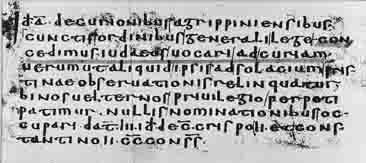 idem a. decurionibus agrippiniensibus.
cunctis ordinibus generali lege con
cedimus iudaeos uocari ad curiam
uerum ut aliquid ipsis ad solacium pris
tinae obseruationis relinquatur
binos uel ternos priuilegio perpeti
patimur nullis nominationibus oc
cupari dat. III. id dec crispo II. et cons
tantino II. cc conss.